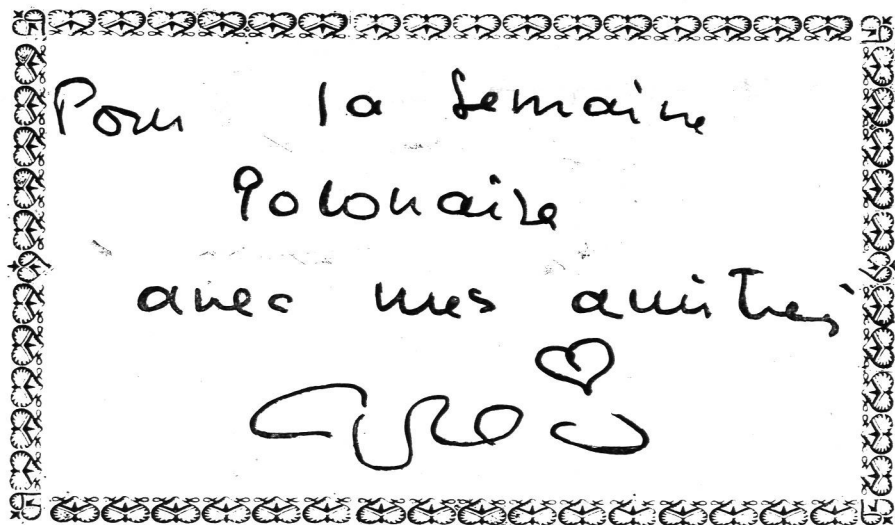 Pour la Semaine
Polonaise
avec mes amitiés